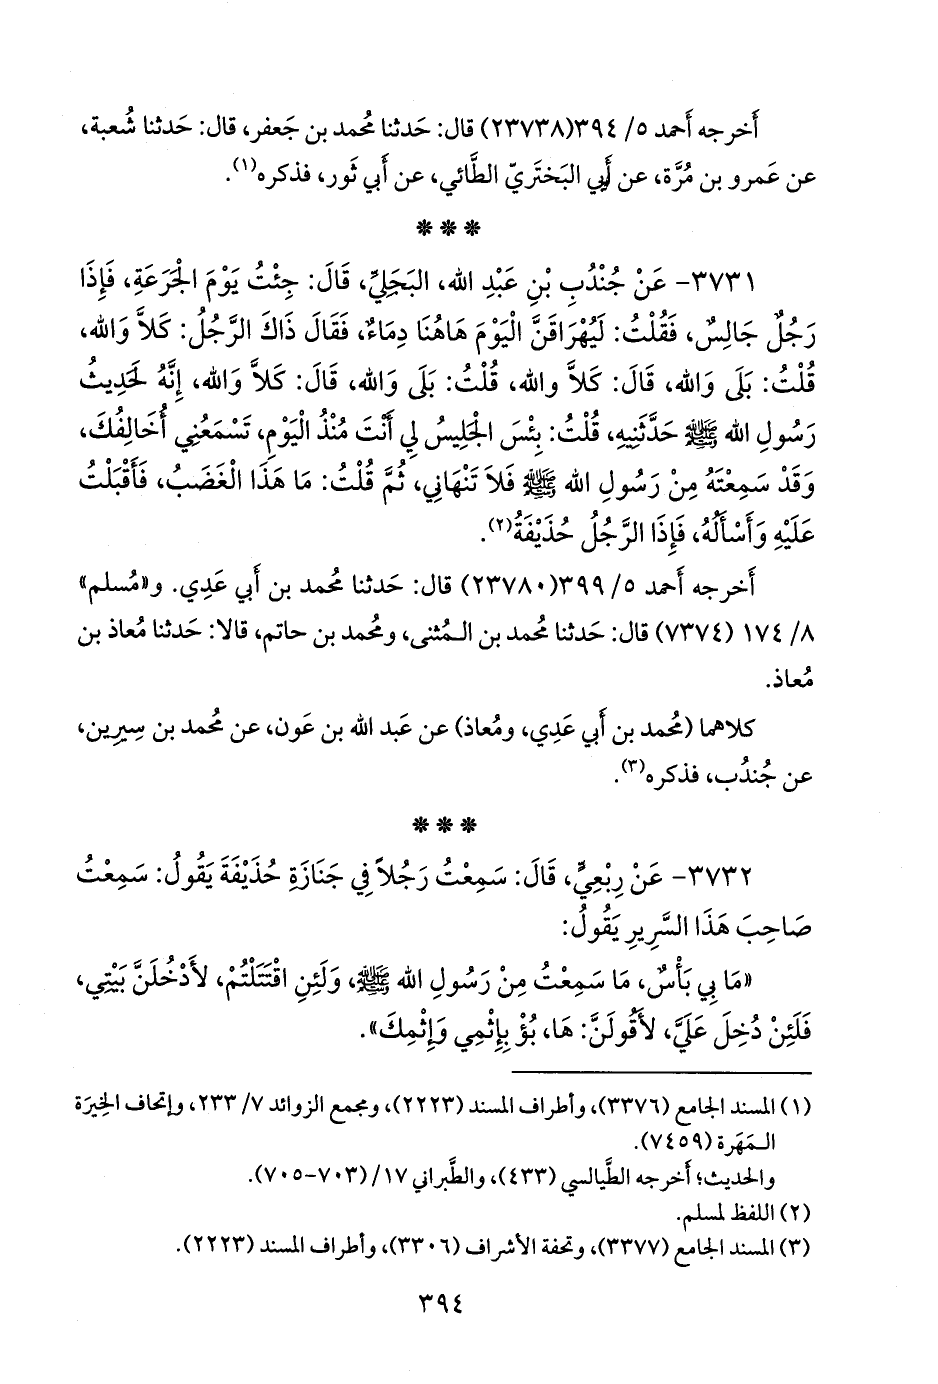 أَخرجه أَحمد ٥/ ٣٩٤(٢٣٧٣٨) قال: حَدثنا مُحمد بن جَعفر، قال: حَدثنا شُعبة،
عن عَمرو بن مُرَّة، عن أَبي البَختَريّ الطَّائي، عن أَبي ثَور، فذكره(١).
***
٣٧٣١- عَنْ جُنْدُبِ بْنِ عَبْدِ الله، البَجَلِيِّ، قَالَ: جِئْتُ يَوْمَ الْجَرَعَةِ، فَإِذَا
رَجُلٌ جَالِسٌ، فَقُلْتُ: لَيُهْرَاقَنَّ الْيَوْمَ هَاهُنَا دِمَاءٌ، فَقَالَ ذَاكَ الرَّجُلُ: كَلاَّ وَالله،
قُلْتُ: بَلَى وَالله، قَالَ: كَلاَّ والله، قُلْتُ: بَلَى وَالله، قَالَ: كَلاَّ وَالله، إِنَّهُ لَحَدِيثُ
رَسُولِ الله ﷺ حَدَّثَنِيهِ، قُلْتُ: بِئْسَ الْجَلِيسُ لِي أَنْتَ مُنْذُ الْيَوْمِ، تَسْمَعُنِي أُخَالِفُكَ،
وَقَدْ سَمِعْتَهُ مِنْ رَسُولِ الله ﷺ فَلاَ تَنْهَانِي، ثُمَّ قُلْتُ: مَا هَذَا الْغَضَبُ، فَأَقْبَلْتُ
عَلَيْهِ وَأَسْأَلُهُ، فَإِذَا الرَّجُلُ حُذَيْفَةُ(٢).
أَخرجه أَحمد ٥/ ٣٩٩(٢٣٧٨٠) قال: حَدثنا مُحمد بن أَبي عَدِي. و«مُسلم»
٨/ ١٧٤ (٧٣٧٤) قال: حَدثنا مُحمد بن الـمُثنى، ومُحمد بن حاتم، قالا: حَدثنا مُعاذ بن
مُعاذ.
كلاهما (مُحمد بن أَبي عَدِي، ومُعاذ) عن عَبد الله بن عَون، عن مُحمد بن سِيرِين،
عن جُندُب، فذكره(٣).
***
٣٧٣٢- عَنْ رِبْعِيٍّ، قَالَ: سَمِعْتُ رَجُلاً فِي جَنَازَةِ حُذَيْفَةَ يَقُولُ: سَمِعْتُ
صَاحِبَ هَذَا السَّرِيرِ يَقُولُ:
«مَا بِي بَأْسٌ، مَا سَمِعْتُ مِنْ رَسُولِ الله ﷺ، وَلَئِنِ اقْتَتَلْتُمْ، لأَدْخُلَنَّ بَيْتِي،
فَلَئِنْ دُخِلَ عَلَيَّ، لأَقُولَنَّ: هَا، بُؤْ بِإِثْمِي وَإِثْمِكَ».
(١) المسند الجامع (٣٣٧٦)، وأطراف المسند (٢٢٢٣)، ومجمع الزوائد ٧/ ٢٣٣، وإتحاف الخِيرَة
الـمَهَرة (٧٤٥٩).
والحديث؛ أَخرجه الطَّيالسي (٤٣٣)، والطَّبراني ١٧/ (٧٠٣-٧٠٥).
(٢) اللفظ لمسلم.
(٣) المسند الجامع (٣٣٧٧)، وتحفة الأشراف (٣٣٠٦)، وأطراف المسند (٢٢٢٣).
٣٩٤